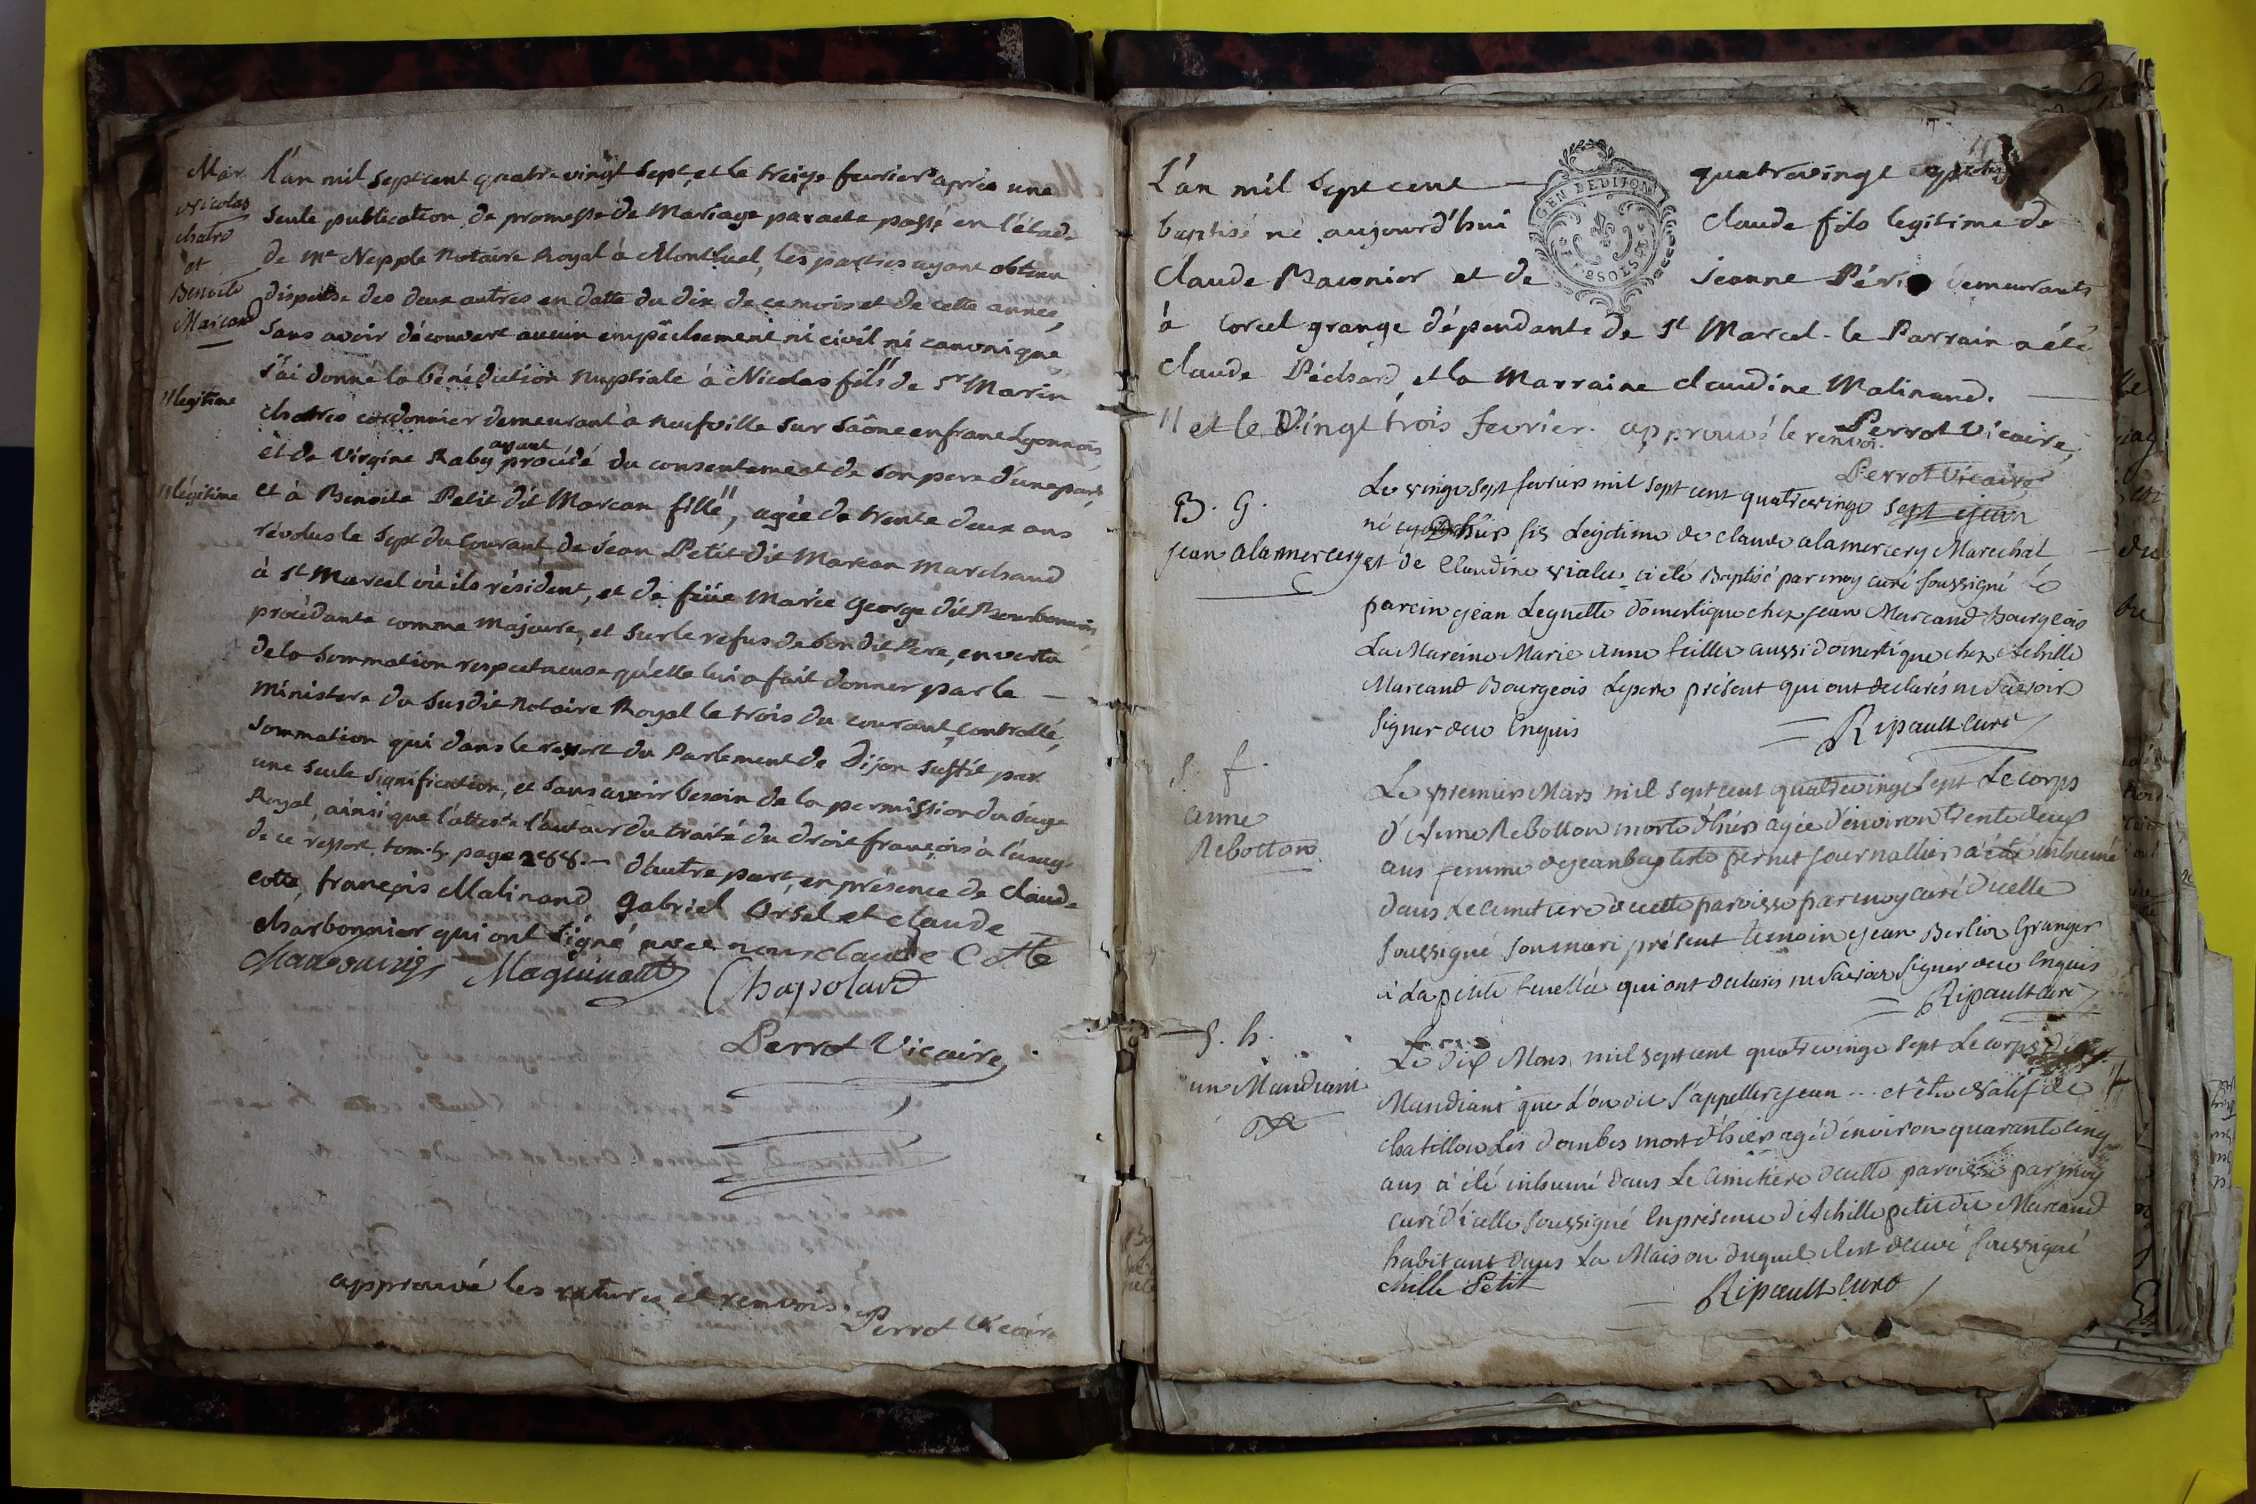 Mar.
Nicolas
chatre
et
Benoite
Marcand
"legitime
"légitime
L'an mil sept cent quatre vingt sept, et le treize fevrier après une
seule publication de promesse de Mariage par acte passé en l'étude
de Me Nepple Notaire Royal à Montluel, les parties ayant obtenu
dispense des deux autres en datte du dix de ce mois et de cette année,
sans avoir découvert aucun empêchement ni civil ni canonique,
j'ai donné la bénédiction nuptiale à Nicolas fils" de Sr Marin
chatres cordonnier demeurant à Neufville sur Saône en franc Lyonnois,
et de Virgine Raby ayant procédé du consentement de son pere d'une part,
et à Benoite Petit dit Marcan fille", agée de trente deux ans
révolus le sept du Courant de Jean Petit dit Marcan Marchand
à St Marcel où ils résident, et de feüe Marie George dit Bourbonnois,
procédante comme Majeure, et sur le refus de son dit Pere, en vertu
de la sommation respectueuse qu'elle lui a fait donner par le
ministere du susdit Notaire Royal le trois du courant, controllé,
sommation qui dans le ressort du Parlement de Dijon suffit par
une seule signification, et sans avoir besoin de la permission du Juge
Royal, ainsi que l'atteste l'auteur du traité du droit françois à l'usage
de ce ressort, tom. page 288. d'autre part, en présence de Claude
Cotte, françois Malinand, Gabriel Orsel et claude
charbonnier qui ont signé avec nous Claude Cotte
Chapolard
Perrot Vicaire
approuvé les ratures et renvois. Perrot Vicaire
L'an mil sept cent quatrevingt
GEN DE DIJON
baptisé né aujourd'hui Claude fils legitime de
Claude Raconier et de Jeanne demeurants
à Corcel grange dépendante de St Marcel - le Parrain a été
Claude Péchard et la Marraine claudine Malinand.
" et le Vingt trois fevrier. approuvé le renvoi. Perrot Vicaire,
Perrot Vicaire
B. G.
jean alamercery
Le vingt sept fevrier mil sept cent quatrevingt sept jean
né hier fis Legitime de claude alamercery Marechal
et de Claudine vialu a été Baptisé par moy curé soussigné le
parein jean Legnette domestique chez jean Marcand Bourgeois
La Mareine Marie Anne aussi domestique chez Achille
Marcand Bourgeois Le pere présent qui ont declarés ne Savoir
signer deuo Enquis
Ripault curé
S. f.
anne
Rebotton
Le premier Mars mil sept cent quatrevingt sept Le corps
d'Anne Rebotton morte d'hier agée d'environ trente deux
ans femme de jean baptiste pernet journallier a été inhumé
dans Le cimetiere de cette paroisse par moy curé d'icelle
soussigné son mari présent temoin jean Berlior Granger
à La petite qui ont declarés ne Savoir signer deuo Enquis
Ripault curé
S. h.
un Mandiant
Le dix Mars mil sept cent quatrevingt sept Le corps
Mandiant que L'on dit s'appeller jean ... et être natif de
chatillon Les dombes mort d'hier agé d'environ quarante cinq
ans a été inhumé dans Le Cimetiere de cette paroisse par moy
curé d'icelle soussigné En présence d'Achille petit dit Marcand
habitant dans La Maison duquel il est decedé soussigné
chille Petit
Ripault curé